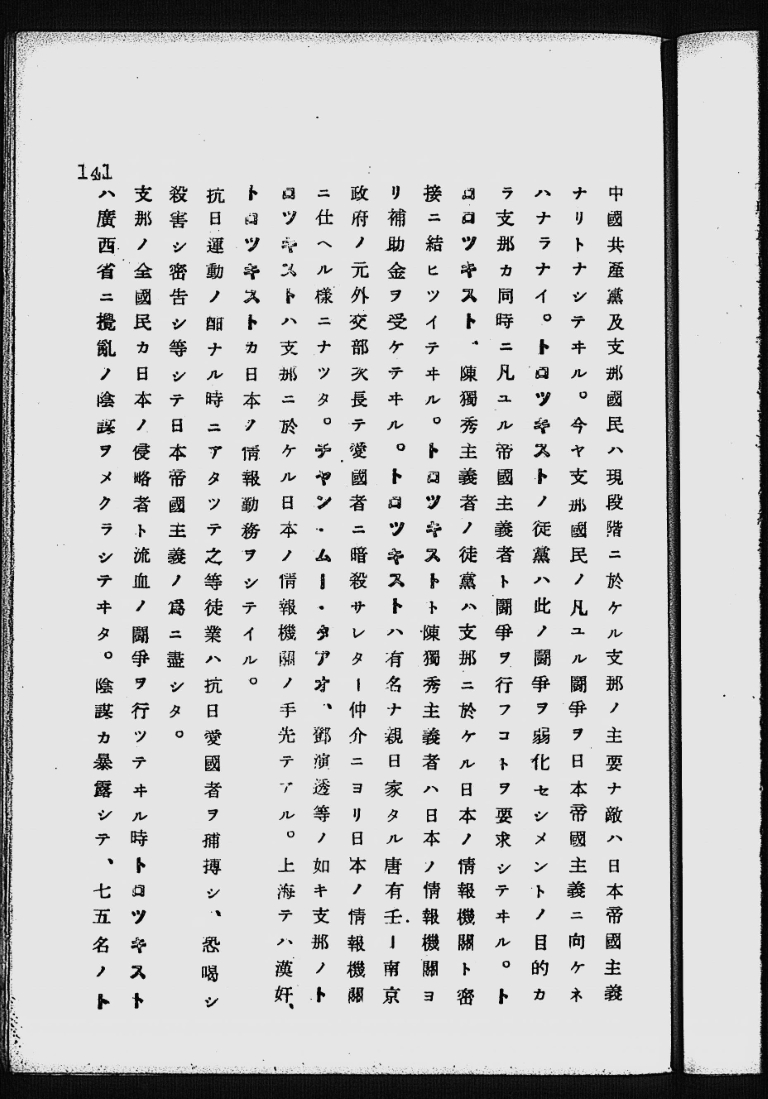 中國共產黨及支那國民ハ現段階ニ於ケル支那ノ主要ナ敵ハ日本帝國主義
ナリトナシテヰル。今ヤ支那國民ノ凡ユル闘爭ヲ日本帝國主義ニ向ケネ
ハナラナイ。トロツキストノ徒黨ハ此ノ闘爭ヲ弱化セシメントノ目的カ
ラ支那カ同時ニ凡ユル帝國主義者ト闘爭ヲ行フコトヲ要求シテヰル。ト
ロロツキスト、陳獨秀主義者ノ徒黨ハ支那ニ於ケル日本ノ情報機關ト密
接ニ結ヒツイテヰル。トロツキストト陳獨秀主義者ハ日本ノ情報機關ヨ
リ補助金ヲ受ケテヰル。トロツキストハ有名ナ親日家タル唐有壬ー南京
政府ノ元外交部次長テ愛國者ニ暗殺サレターー仲介ニヨリ日本ノ情報機關
ニ仕ヘル樣ニナツタ。チヤン・ムー・タアオ、鄧演透等ノ如キ支那ノト
ロツキストハ支那ニ於ケル日本ノ情報機關ノ手先テアル。上海テハ漢奸、
トロツキストカ日本ノ情報勤務ヲシテイル。
抗日運動ノ酣ナル時ニアタツテ之等徒業ハ抗日愛國者ヲ捕搏シ、恐喝シ
殺害シ密告シ等シテ日本帝國主義ノ爲ニ盡シタ。
支那ノ全國民カ日本ノ侵略者ト流血ノ闘爭ヲ行ツテヰル時トロツキスト
ハ廣西省ニ攪亂ノ陰謀ヲメクラシテヰタ。陰謀カ暴露シテ、七五名ノト
141